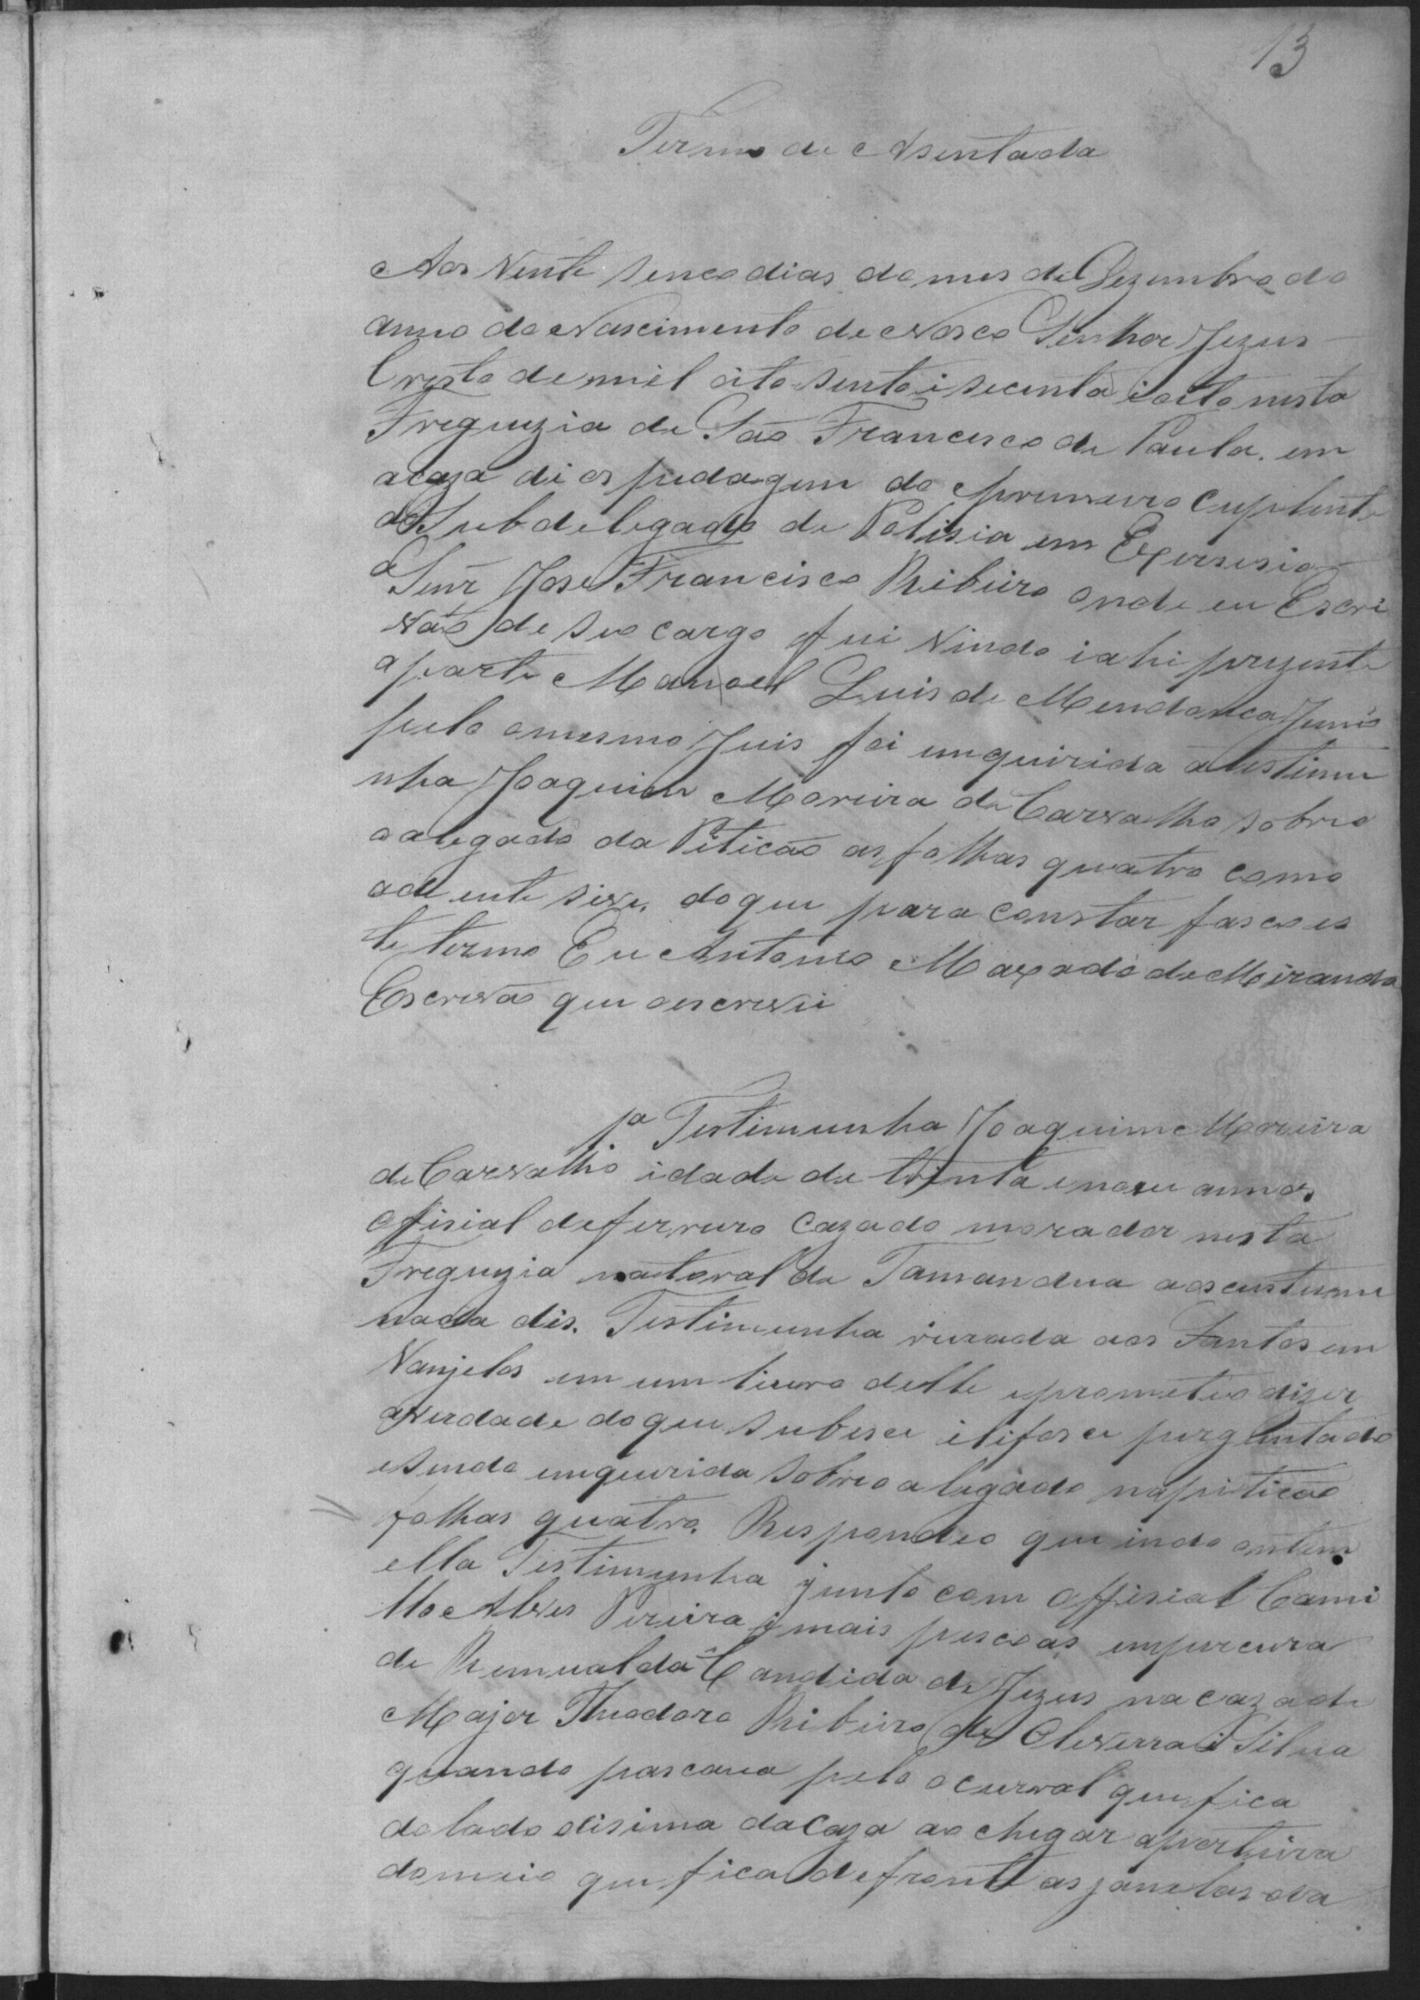 13
Termo de Asentada
Aos vente senco dias do mes de Dezembro do
anno do Nascimento de Nosco Senhor Jezus
Cresto de mil oito sento i secenta i oito nesta
Freguzia de São Francisco de Paula. em
a caza di ospedagem do primeiro cuplente
do Subdelegado de Polisia em Exersisio
o Senr Jose Francisco Ribeiro onde eu Escri
vão de seo cargo fui vindo i ahi prezente
a parte Manoel Luis de Mendonca Junió
pelo o mesmo Juis foi enquirida a testimu
nha Joaquim Moreira de Carvalho sobre o
o alegado da Piticão as folhas quatro como
adiente sive, do que para constar fasco es
te termo Eu Antonio Maxado de Miranda
Escrevão que o escrevii
1a Testimunha Joaquim Moreira
de Carvalho idade de trinta e nove annos
ofisial de ferrero Cazado morador nesta
Freguzia natoral da Tamandua aos custume
nada dis. Testimunha jurada aos Santos em
Vanjelos em um livro delle e prometeo dizer
a verdade do que subese e li fose perguntado
e sendo enquirida sobre o alegado na piticão
folhas quatro. Respondeo que indo ontem
ella Testimunha junto com Offisial Cami
llo Alves Pereira i mais pescoas em percura
de Remualda Candida de Jezus na caza do
Major Theodoro Ribeiro de Oleverra i Silva
quando pascava pelo o curral que fica
do lado disima da caza ao chegar a porteira
do meio que fica defronte as janelas da